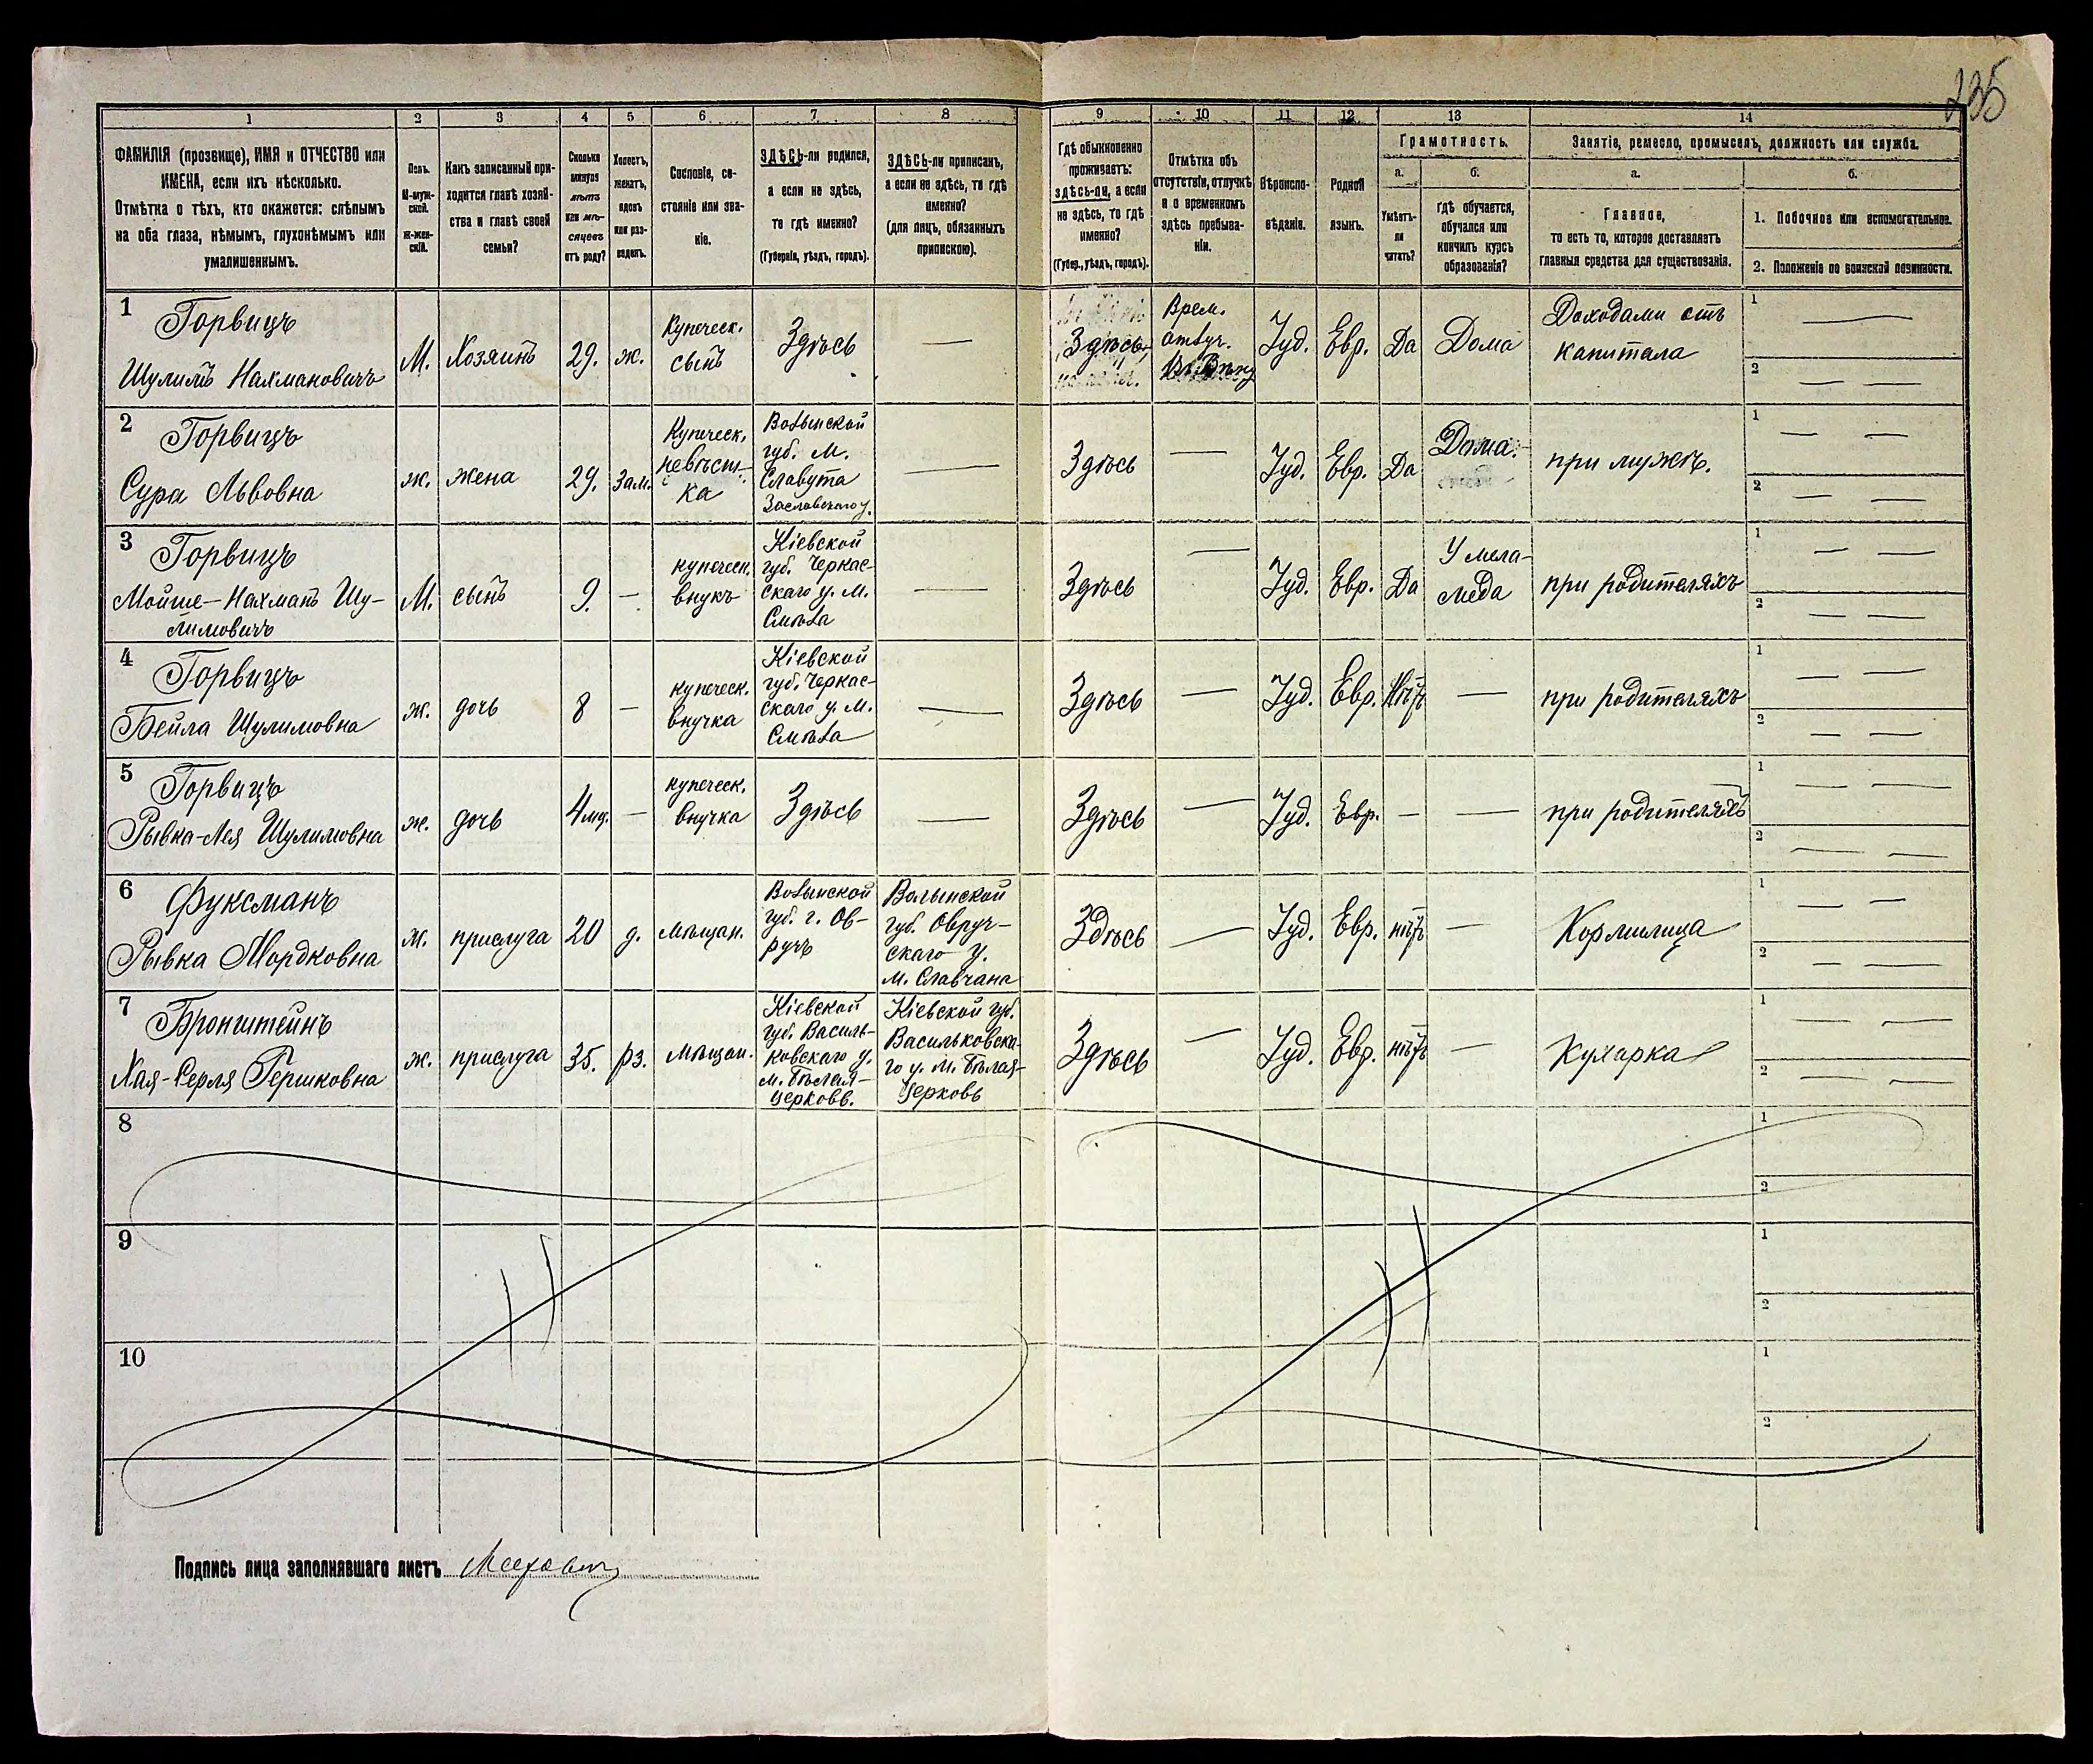 235
1 2 3 4 5 6 7 8 9 10 11 12 13 14
ФАМИЛІЯ (прозвище), ИМЯ и ОТЧЕСТВО или
ИМЕНА, если ихъ нѣсколько.
Отмѣтка о тѣхъ, кто окажется: слѣпымъ
на оба глаза, нѣмымъ, глухонѣмымъ или
умалишеннымъ.
Полъ.
М-муж-
ской.
ж-жен-
скій.
Какъ записанный при-
ходится главѣ хозяй-
ства и главѣ своей
семьи?
Сколько
минуло
лѣтъ
или мѣ-
сяцевъ
отъ роду?
Холостъ,
женатъ,
вдовъ
или раз-
веденъ.
Сословіе, со-
стояніе или зва-
ніе.
ЗДѢСЬ-ли родился,
а если не здѣсь,
то гдѣ именно?
(Губернія, уѣздъ, городъ).
ЗДѢСЬ-ли приписанъ,
а если не здѣсь, то гдѣ
именно?
(для лицъ, обязанныхъ
припискою).
Гдѣ обыкновенно
проживаетъ:
здѣсь-ли, а если
не здѣсь, то гдѣ
именно?
(Губер., уѣздъ, городъ).
Отмѣтка объ
отсутствіи, отлучкѣ
и о временномъ
здѣсь пребыва-
ніи.
Вѣроиспо-
вѣданіе.
Родной
языкъ.
Грамотность.
а.
Умѣетъ-
ли
читать?
б.
гдѣ обучается,
обучался или
кончилъ курсъ
образованія?
Занятіе, ремесло, промыселъ, должность или служба.
а.
Главное,
то есть то, которое доставляетъ
главныя средства для существованія.
б.
1. Побочное или вспомогательное.
2. Положеніе по воинской повинности.
1
Горвицъ
Шулимъ Нахмановичъ
М.
Хозяинъ
29.
ж.
Купеческ.
сынъ
Здѣсь
—
Здѣсь
Врем.
отлуч.
Іуд.
Евр.
Да
Дома
Доходами отъ
капитала
1 —
2 — —
2
Горвицъ
Сура Львовна
ж.
жена
29.
Зам.
Купеческ.
невѣст-
ка
Волынской
губ. м.
Славута
Заславскаго у.
—
Здѣсь
—
Іуд.
Евр.
Да
Дома.
при мужѣ.
1 — —
2 — —
3
Горвицъ
Мойше-Нахманъ Шу-
лимовичъ
М.
сынъ
9.
—
купеческ.
внукъ
Кіевской
губ. Черкас-
скаго у. м.
Смѣла
—
Здѣсь
—
Іуд.
Евр.
Да
У мела-
меда
при родителяхъ
1 — —
2 — —
4
Горвицъ
Бейла Шулимовна
ж.
дочь
8
—
купеческ.
внучка
Кіевской
губ. Черкас-
скаго у. м.
Смѣла
—
Здѣсь
—
Іуд.
Евр.
Нѣтъ
—
при родителяхъ
1 — —
2 — —
5
Горвицъ
Рывка-Лея Шулимовна
ж.
дочь
4 мц.
—
купеческ.
внучка
Здѣсь
—
Здѣсь
—
Іуд.
Евр.
—
—
при родителяхъ
1 — —
2 — —
6
Фуксманъ
Рывка Мордковна
ж.
прислуга
20
д.
мѣщан.
Волынской
губ. г. Ов-
ручъ
Волынской
губ. Овруч-
скаго у.
м. Славчана
Здѣсь
—
Іуд.
Евр.
нѣтъ
—
Кормилица
1 — —
2 — —
7
Бронштейнъ
Хая-Серля Гершковна
ж.
прислуга
35.
рз.
мѣщан.
Кіевской
губ. Василь-
ковскаго у.
м. Бѣлая-
Церковь.
Кіевской губ.
Васильковска-
го у. м. Бѣлая-
Церковь
Здѣсь
—
Іуд.
Евр.
нѣтъ
—
Кухарка
1 — —
2 — —
8
1
2
9
1
2
10
1
2
Подпись лица заполнявшаго листъ